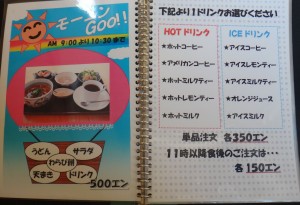 モーニン Goo!!
AM 9:00より10:30まで
うどん
サラダ
わらび餅
天まき
ドリンク
500エン
下記より1ドリンクお選びください
HOTドリンク
★ホットコーヒー
★アメリカンコーヒー
★ホットミルクティー
★ホットレモンティー
★ホットミルク
ICEドリンク
★アイスコーヒー
★アイスレモンティー
★アイスミルクティー
★オレンジジュース
★アイスミルク
単品注文 各350エン
11時以降食後のご注文は…
各150エン